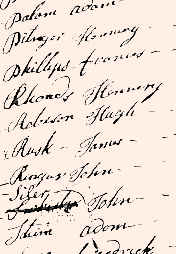 Palom adam
Pilmger Hennery
Phillips frances -
Rhoads Hennery
Roberson Hugh -
Rusk - James -
Ringar John -
Sifer
John -
Shim adam -